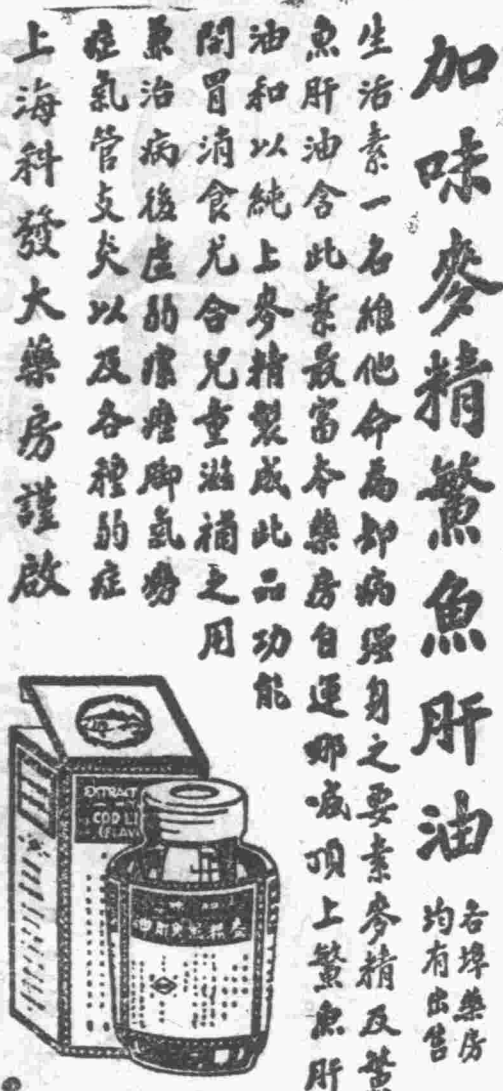 加味麥精鱉魚肝油
各埠藥房
均有出售
生活素一名維他命為却病強身之要素麥精及鱉
魚肝油含此素最富本藥房自運哪威頂上鱉魚肝
油和以純上麥精製成此品功能
開胃消食尤合兒童滋補之用
兼治病後虛弱瘰癧脚氣癆
症氣管支炎以及各種弱症
上海科發大藥房謹啟
EXTRACT
COD LI
(FLAV